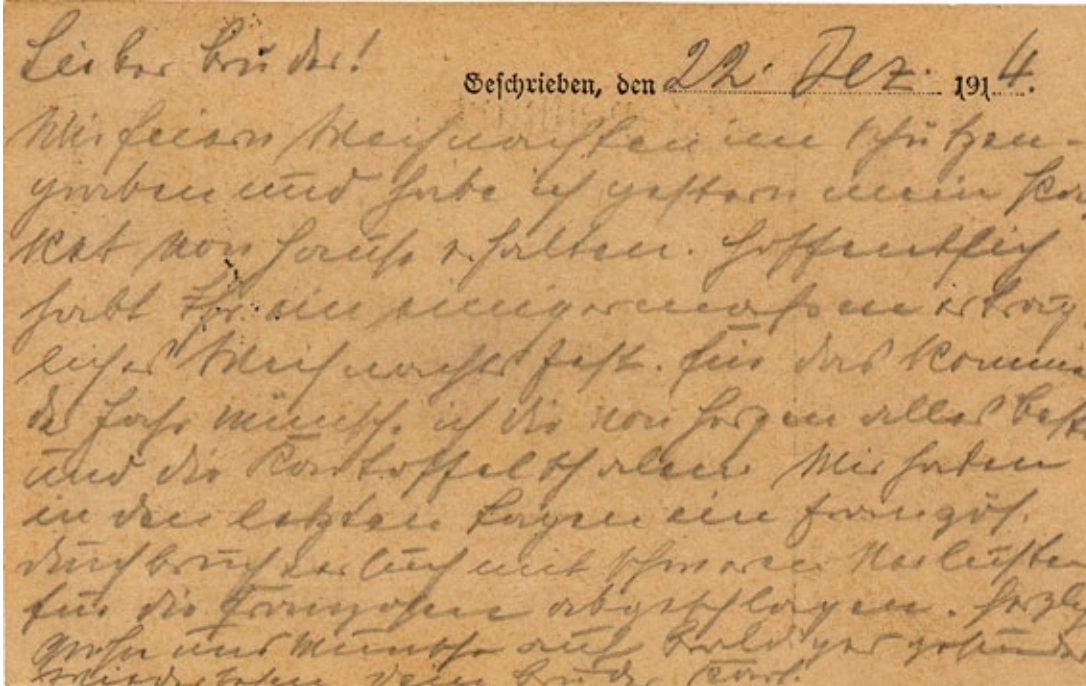 Lieber Bruder!
Geschrieben, den 22. Dez. 1914.
Wir feiern Weihnachten im Schützen-
graben und habe ich gestern mein Pa
ket von Hause erhalten. Hoffentlich
habt Ihr ein einigermaßen erträg
liches Weihnachtsfest. Für das kommen
de Jahr wünsche ich dir von Herzen alles beste
und die Kartoffelschalen. Wir haben
in den letzten Tagen ein französ.
Durchbruchversuch mit schweren Verlusten
für die Franzosen abgeschlagen. Herzlich
Grüße und Wünsche auf baldiges gesundes
Wiedersehen dein Bruder Karl.